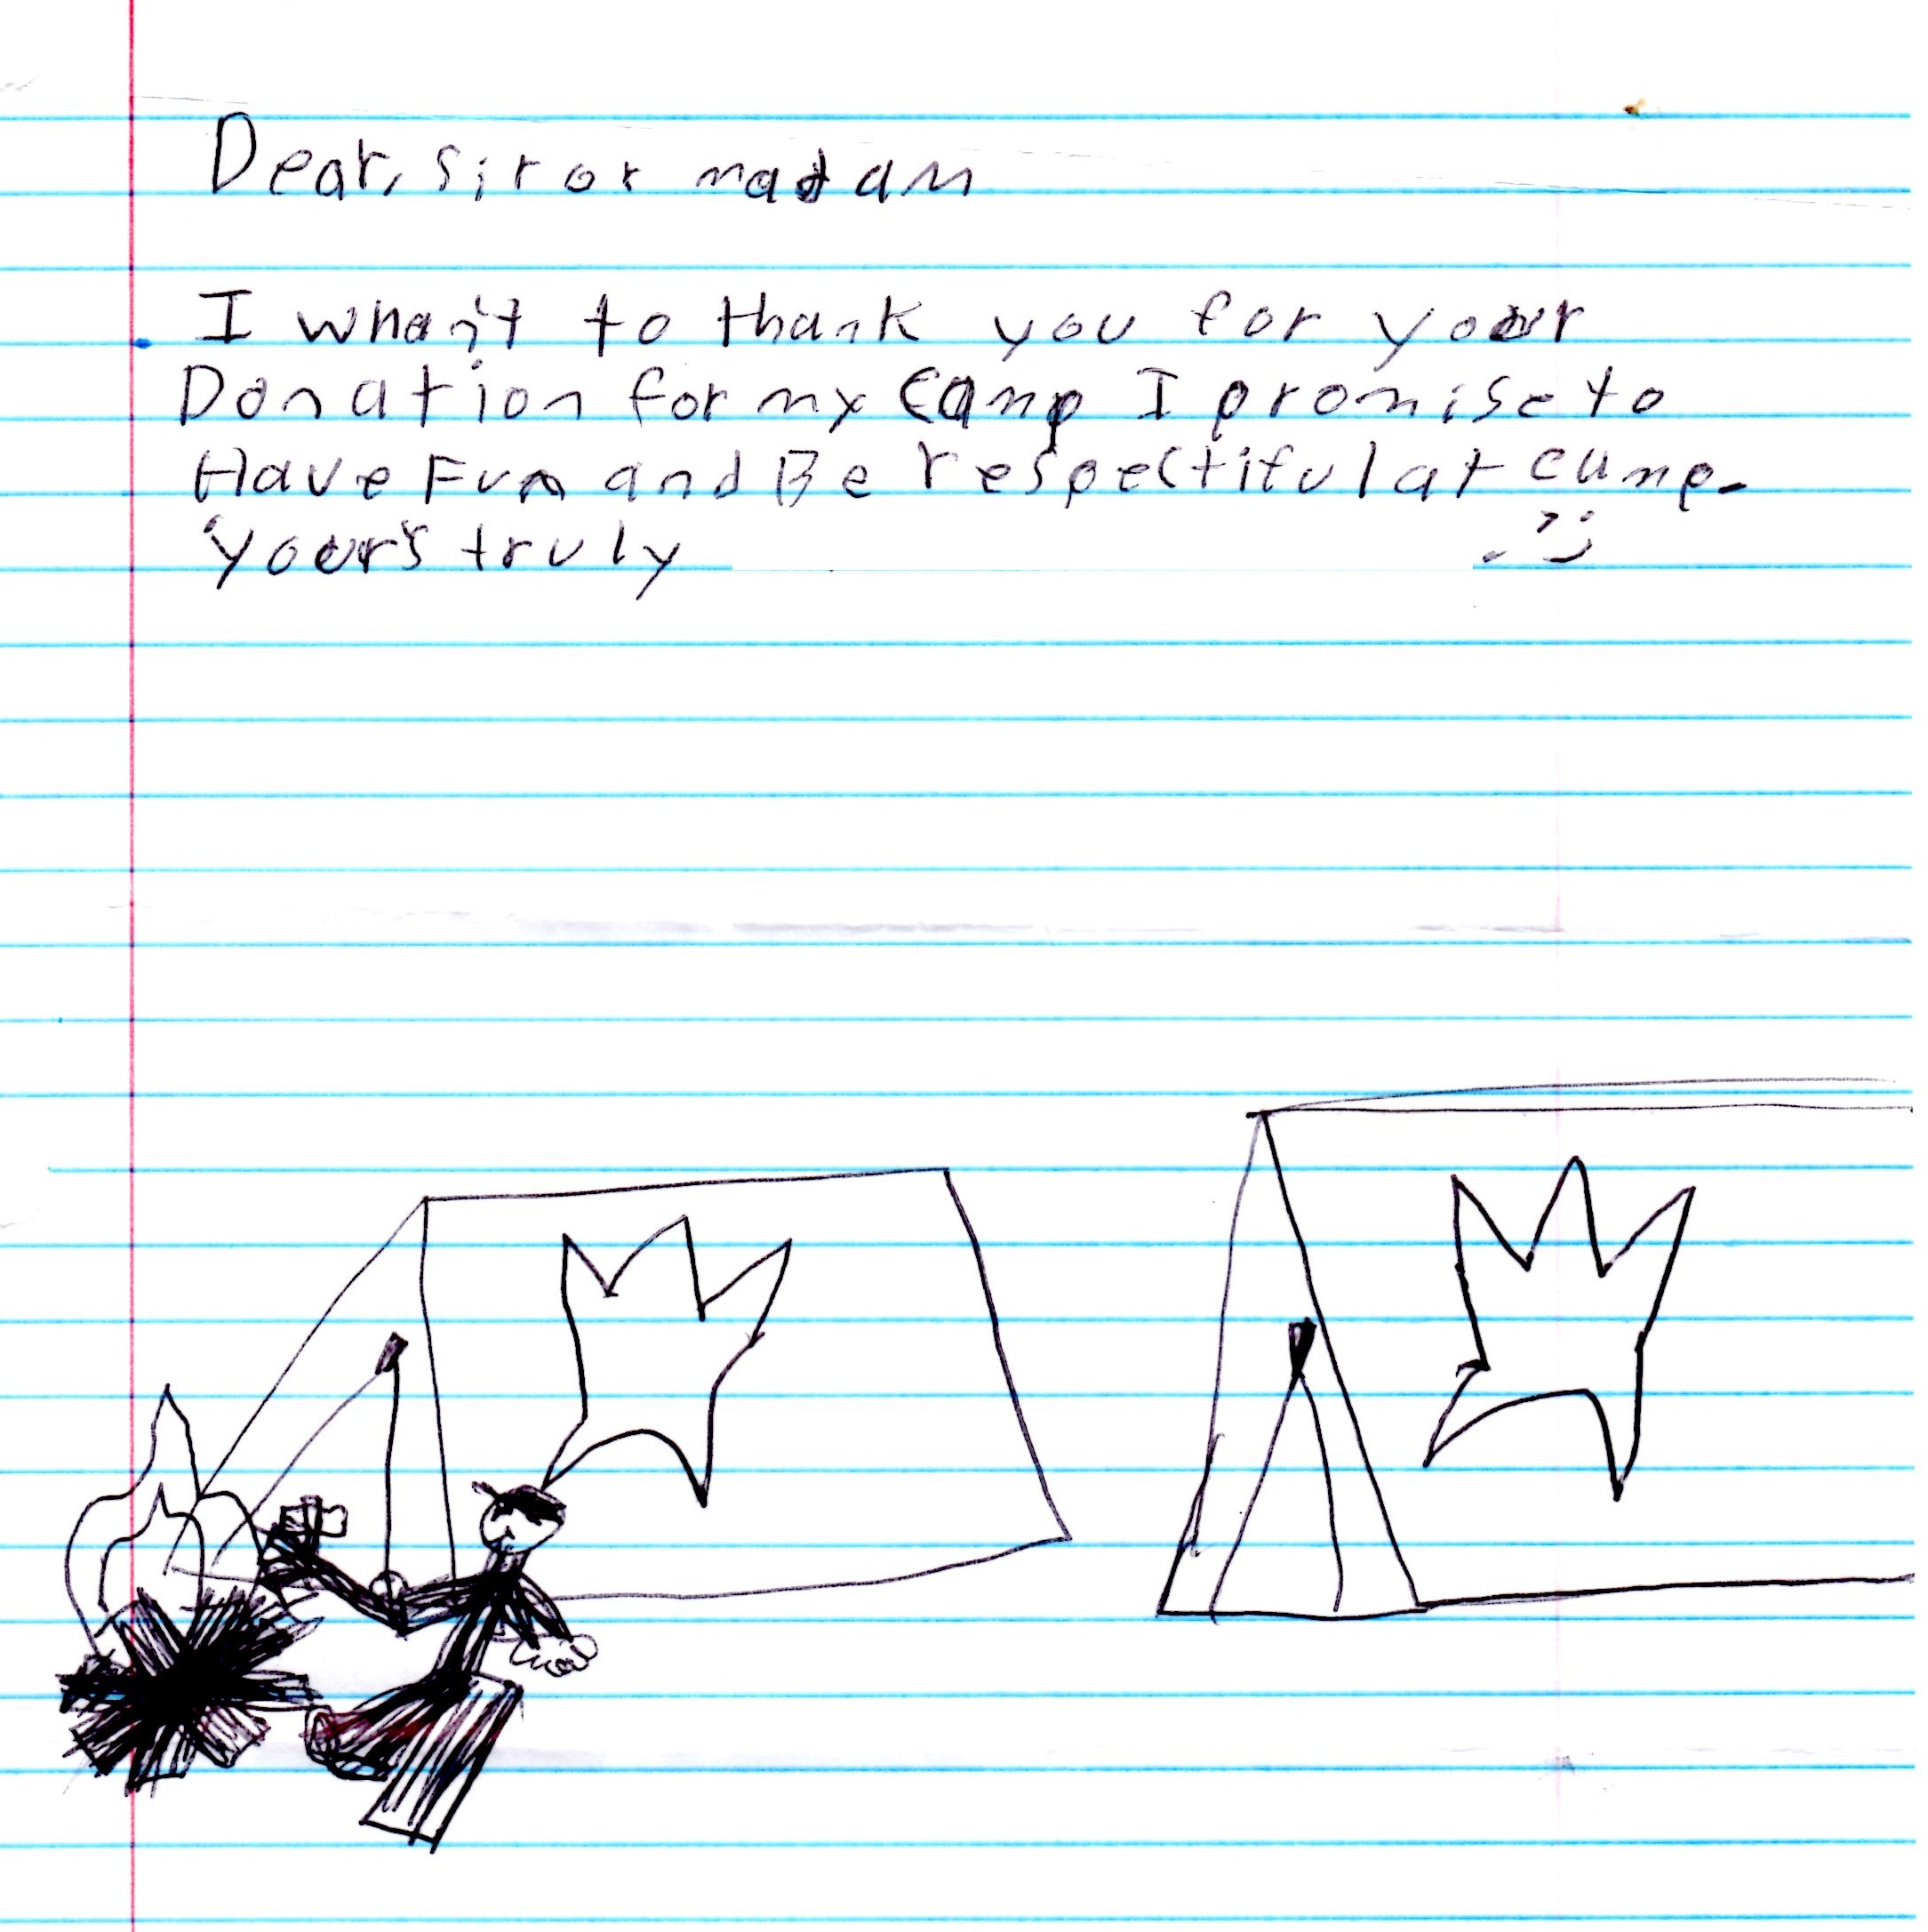 Dear, Sir or madam
I whan't to thank you for your
Donation for my camp I promise to
Have Fun and Be respectiful at camp.
yours truly